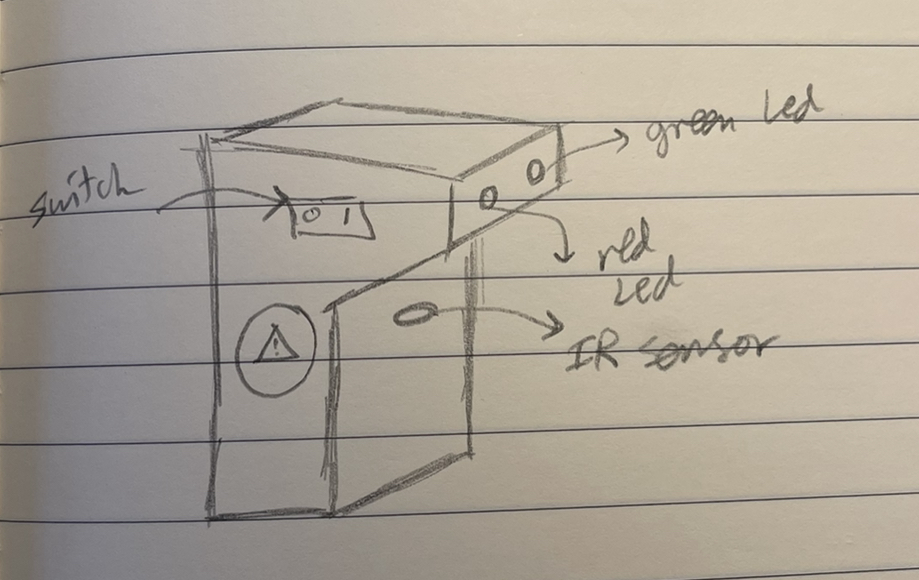 green Led
switch
O I
red
Led
!
IR sensor